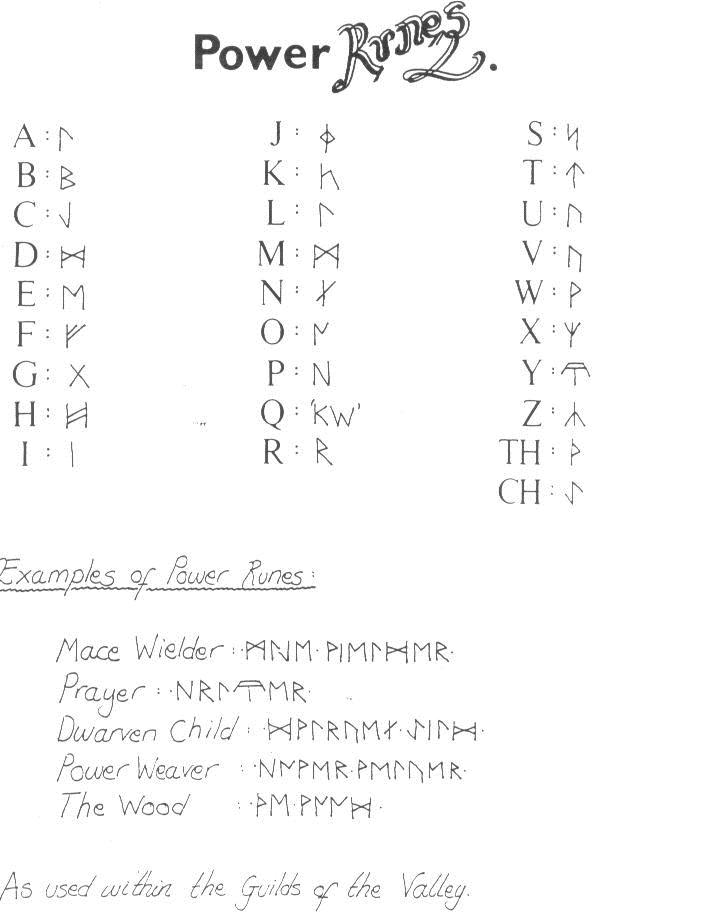 Power Runes.
A : J : ᛄ S : ᛋ
B : ᛒ K : T : ᛏ
C : L : ᛚ U : ᚢ
D : ᛞ M : ᛗ V :
E : ᛖ N : ᚾ W : ᚹ
F : ᚠ O : X : ᛉ
G : ᚷ P : Y :
H : ᚻ Q : 'KW' Z : ᛦ
I : ᛁ R : ᚱ TH : ᚦ
CH :
Examples of Power Runes :
Mace Wielder :
Prayer :
Dwarven Child :
Power Weaver :
The Wood :
As used within the Guilds of the Valley.